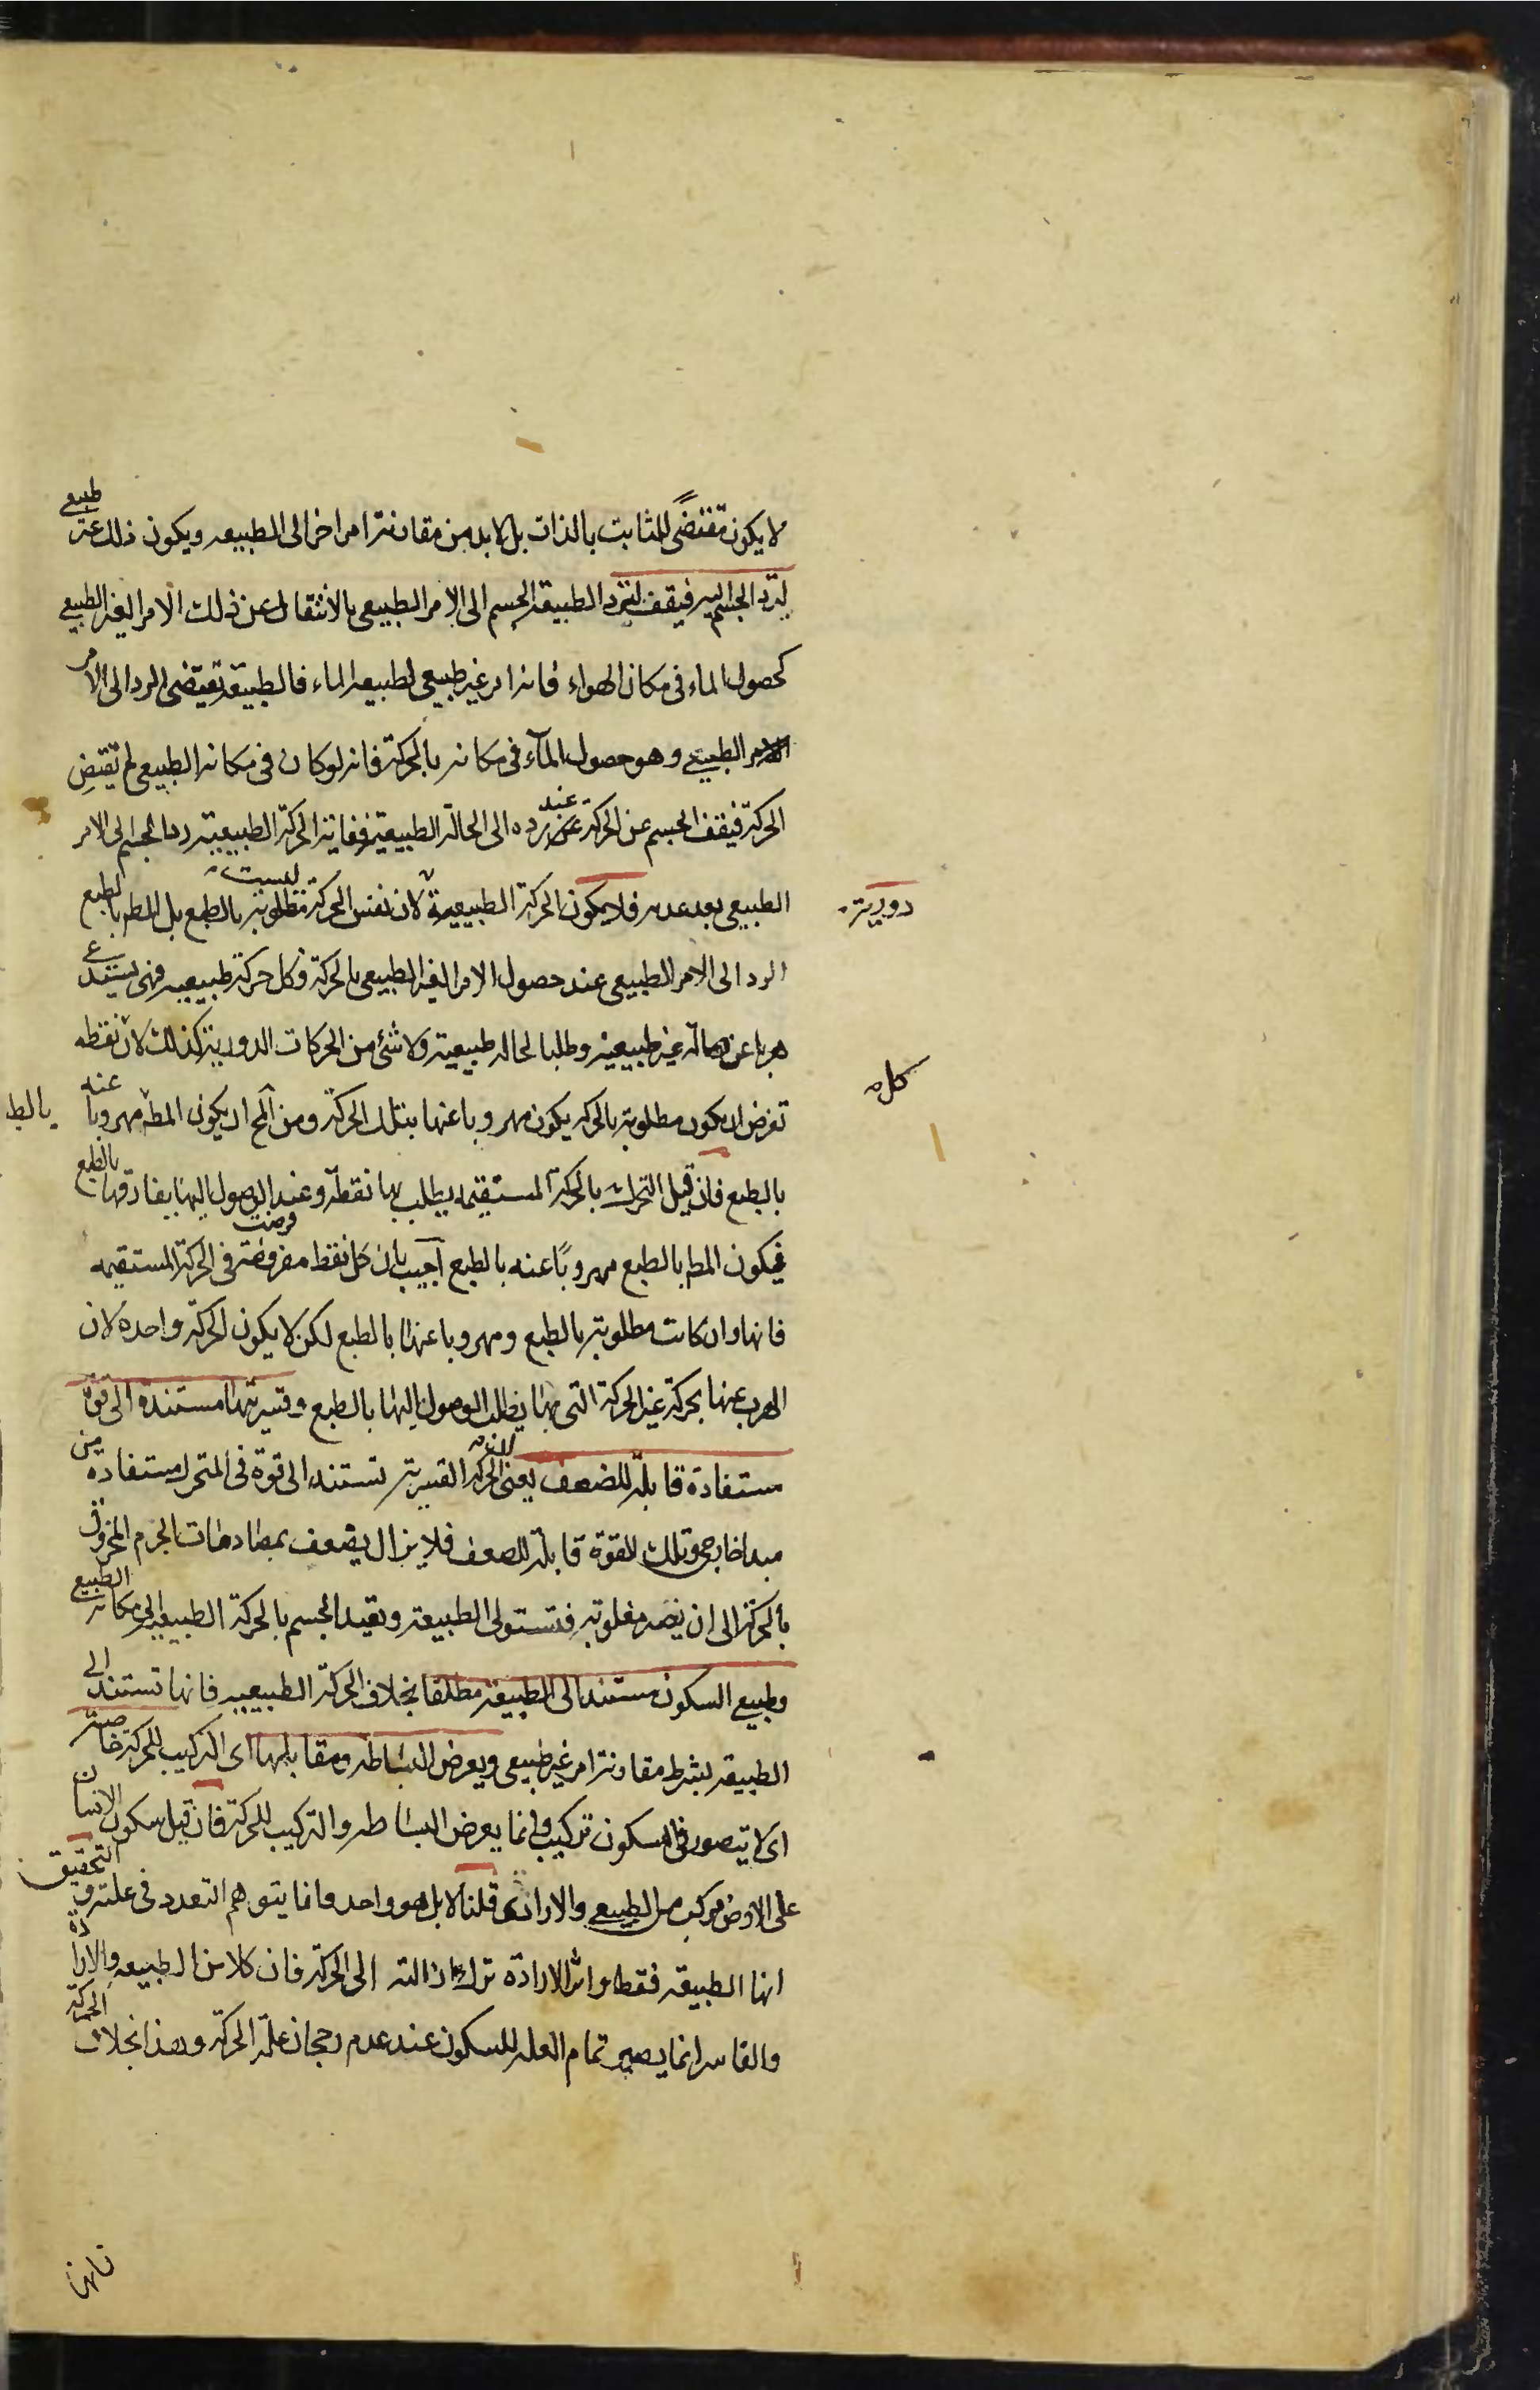 لا يكون مقتضًى للثابت بالذات بل لابد من مقارنة امر اخر الى الطبيعه ويكون ذلك غير طبيعى
ليرد الجسم اليه فيقف لترد الطبيعة الجسم الى الامر الطبيعى بالانتقال عن ذلك الامر الغير الطبيعى
كحصول الماء فى مكان الهواء فانه امر غير طبيعى لطبيعه الماء فالطبيعة تقتضى الرد الى الامر
الامر الطبيعى وهو حصول المآء فى مكانه بالحركة فانه لو كان فى مكانه الطبيعى لم تقتضِ
الحركة فيقف الجسم عن الحركة عند رده الى الحالة الطبيعية فغاية الحركة الطبيعية رد الجسم الى الامر
الطبيعى بعد عدمه فلا يكون الحركة الطبيعية دورية لان نفس الحركة ليست مطلوبة بالطبع بل المط بالطبع
الرد الى الامر الطبيعى عند حصول الامر الغير الطبيعى بالحركة فكل حركة طبيعيه فهى يستدعى
هربا عن حالة غير طبيعية وطلبا لحاله طبيعية ولا شئ من الحركات الدورية كذلك لان كل نقطه
تفرض ان يكون مطلوبة بالحركه يكون مهروبا عنها بتلك الحركة ومن المح ان يكون المط مهروبا عنه
بالطبع فان قيل التحرك بالحركة المستقيمه يطلب بها نقطة وعند الوصول اليها يفارقها بالطبع
فيكون المط بالطبع مهروبًا عنه بالطبع اجيب بان كل نقطه مفروضة فرضت فى الحركة المستقيمه
فانها وان كانت مطلوبة بالطبع ومهروبا عنها بالطبع لكن لا يكون الحركة واحده لان
الهرب عنها بحركة غير الحركة التى بها يطلب الوصول اليها بالطبع وقسريتها مستندة الى قوة
مستفادة قابلة للضعف يعنى الحركة القسرية تستند الى قوة فى المتحرك مستفادة من
مبدا خارجى وتلك القوة قابلة للضعف فلا يزال يضعف بمصادمات الجرم المخروق
بالحركة الى ان يصير مغلوبة فتستولى الطبيعة وتعيد الجسم بالحركة الطبيعية الى مكانه الطبيعى
وطبيعى السكون مستند الى الطبيعة مطلقا بخلاف الحركة الطبيعيه فانها تستند الى
الطبيعة بشرط مقارنة امر غير طبيعى ويعرض البساطه ومقابلها اى التركيب للحركة خاصة
اى لا يتصور فى السكون تركيب وانما يعرض البساطه والتركيب للحركة فان قيل سكون الانسان
على الارض مركب من الطبيعى والارادى قلنا لا بل هو واحد وانما يتوهم التعدد فى علته والتحقيق
انها الطبيعة فقط واثر الارادة ترك ازالته الى الحركة فان كلا من الطبيعه والارادة
والقاسر انما يصير تمام العله للسكون عند عدم رجحان علة الحركة وهذا بخلاف الحركة
فانها